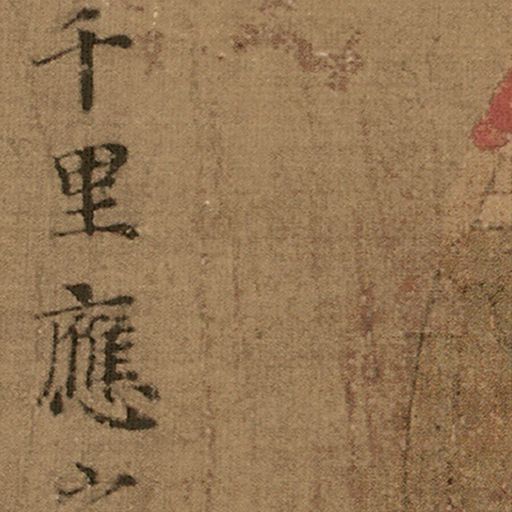 千里應